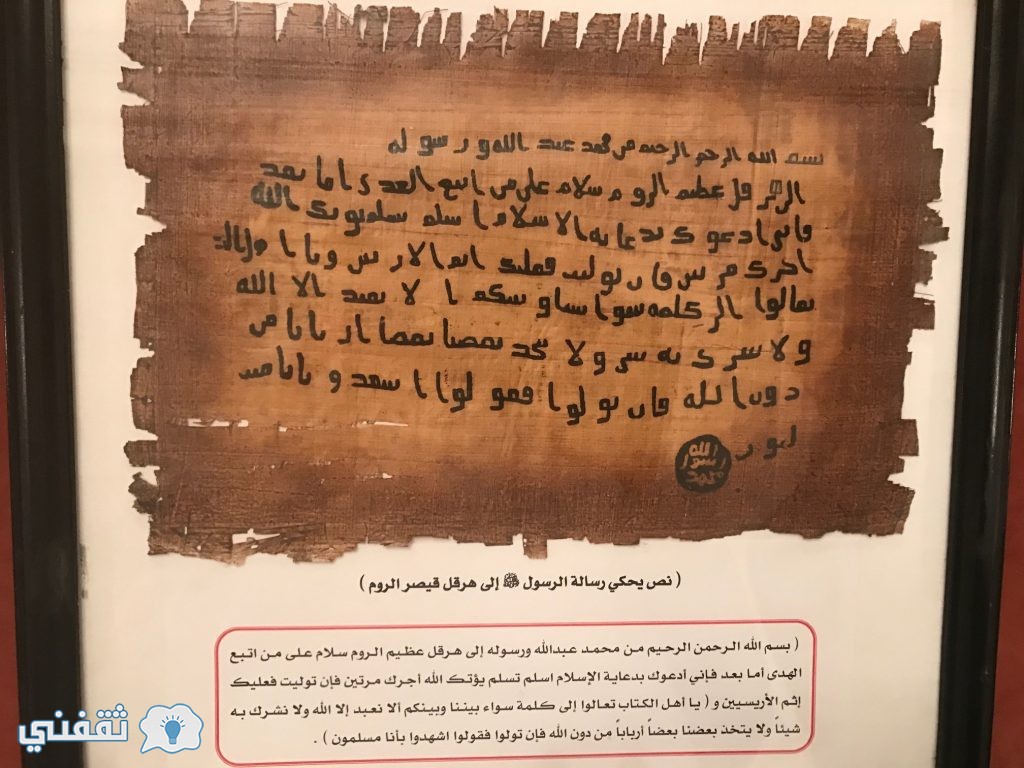 بسم الله الرحمن الرحيم من محمد عبد الله ورسوله
الى هرقل عظيم الروم سلام على من اتبع الهدى اما بعد
فانى ادعوك بدعايه الاسلام اسلم تسلم يوتك الله
اجرك مرتين فان توليت فعليك اثم الاريسين ويا اهل الكتاب
تعالوا الى كلمه سوا بيننا وبينكم الا نعبد الا الله
ولا نشرك به شيا ولا يتخذ بعضنا بعضا اربابا من
دون الله فان تولوا فقولوا اشهدوا بانا مسلمون
الله
رسول
محمد
( نص يحكي رسالة الرسول ﷺ إلى هرقل قيصر الروم )
( بسم الله الرحمن الرحيم من محمد عبدالله ورسوله إلى هرقل عظيم الروم سلام على من اتبع
الهدى أما بعد فإني أدعوك بدعاية الإسلام اسلم تسلم يؤتك الله أجرك مرتين فإن توليت فعليك
إثم الأريسيين و ( يا أهل الكتاب تعالوا إلى كلمة سواء بيننا وبينكم ألا نعبد إلا الله ولا نشرك به
شيئاً ولا يتخذ بعضنا بعضاً أرباباً من دون الله فإن تولوا فقولوا اشهدوا بأنا مسلمون ) .
ثقفني